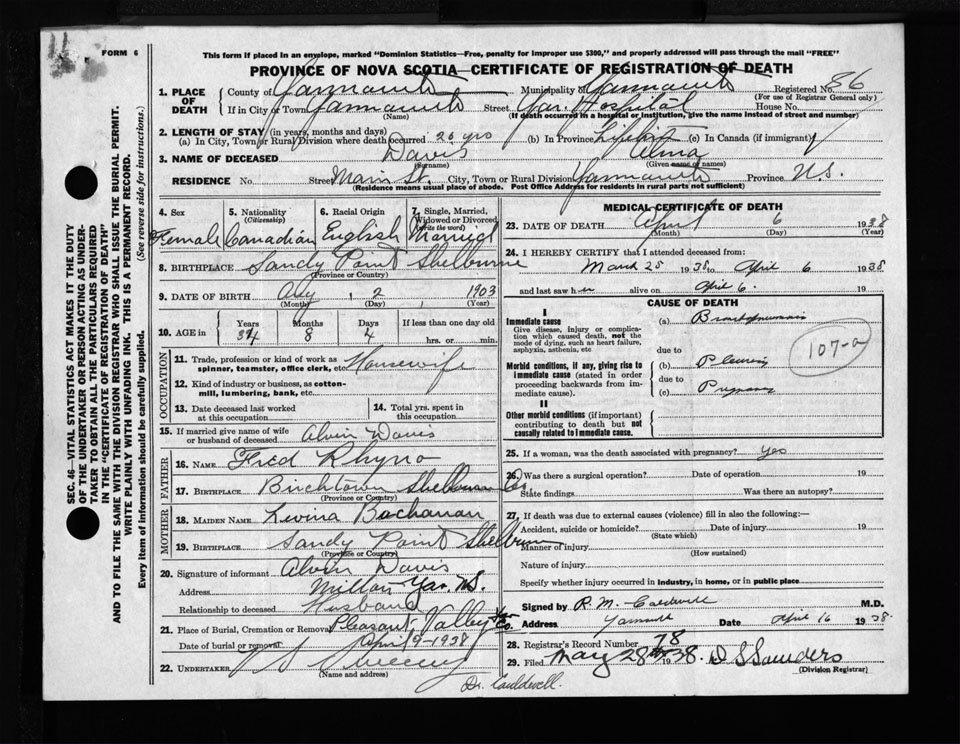 11
FORM 6
This form if placed in an envelope, marked "Dominion Statistics—Free, penalty for improper use $300," and properly addressed will pass through the mail "FREE"
PROVINCE OF NOVA SCOTIA—CERTIFICATE OF REGISTRATION OF DEATH
1. PLACE OF DEATH County of Yarmouth Municipality of Yarmouth Registered No. 86
(For use of Registrar General only)
If in City or Town Yarmouth Street Yar. Hospital House No.
(Name) (If death occurred in a hospital or institution, give the name instead of street and number)
2. LENGTH OF STAY (in years, months and days)
(a) In City, Town or Rural Division where death occurred 20 yrs (b) In Province Lifetime (c) In Canada (if immigrant)
3. NAME OF DECEASED Davis Alma
(Surname) (Given name or names)
RESIDENCE No. Street Main St. City, Town or Rural Division Yarmouth Province N.S.
(Residence means usual place of abode. Post Office Address for residents in rural parts not sufficient)
4. Sex Female
5. Nationality (Citizenship) Canadian
6. Racial Origin English
7. Single, Married, Widowed or Divorced (write the word) Married
8. BIRTHPLACE Sandy Point Shelburne
(Province or Country)
9. DATE OF BIRTH Aug 2 1903
(Month) (Day) (Year)
10. AGE in Years Months Days If less than one day old
34 8 4 hrs. or min.
OCCUPATION
11. Trade, profession or kind of work as spinner, teamster, office clerk, etc. Housewife
12. Kind of industry or business, as cotton-mill, lumbering, bank, etc.
13. Date deceased last worked at this occupation
14. Total yrs. spent in this occupation
15. If married give name of wife or husband of deceased Alvin Davis
FATHER
16. NAME Fred Rhyno
17. BIRTHPLACE Birchtown Shelburne Co
(Province or Country)
MOTHER
18. MAIDEN NAME Levina Buchanan
19. BIRTHPLACE Sandy Point Shelburn
(Province or Country)
20. Signature of informant Alvin Davis
Address Milton Yar. N.S.
Relationship to deceased Husband
21. Place of Burial, Cremation or Removal Pleasant Valley Yar Co.
Date of burial or removal April 9-1938
22. UNDERTAKER Sweeny
(Name and address)
Dr. Cauldwell.
MEDICAL CERTIFICATE OF DEATH
23. DATE OF DEATH April 6 1938
(Month) (Day) (Year)
24. I HEREBY CERTIFY that I attended deceased from:
March 25 1938 to April 6 1938
and last saw h er alive on April 6. 19
CAUSE OF DEATH
I
Immediate cause (a) Bronchopneumonia
Give disease, injury or complication which caused death, not the mode of dying, such as heart failure, asphyxia, asthenia, etc
due to
Morbid conditions, if any, giving rise to immediate cause (stated in order proceeding backwards from immediate cause). (b) Pleurisy
due to
(c) Pregnancy
107-a
II
Other morbid conditions (if important) contributing to death but not causally related to immediate cause.
25. If a woman, was the death associated with pregnancy? Yes
26. Was there a surgical operation? Date of operation 19
State findings Was there an autopsy?
27. If death was due to external causes (violence) fill in also the following:—
Accident, suicide or homicide? Date of injury 19
(State which)
Manner of injury
(How sustained)
Nature of injury
Specify whether injury occurred in industry, in home, or in public place
Signed by R. M. Caldwell M.D.
Address Yarmouth Date April 16 1938.
28. Registrar's Record Number 78
29. Filed May 28th 1938. D S Saunders
(Division Registrar)
SEC. 46—VITAL STATISTICS ACT MAKES IT THE DUTY
OF THE UNDERTAKER OR PERSON ACTING AS UNDER-
TAKER TO OBTAIN ALL THE PARTICULARS REQUIRED
IN THE "CERTIFICATE OF REGISTRATION OF DEATH"
AND TO FILE THE SAME WITH THE DIVISION REGISTRAR WHO SHALL ISSUE THE BURIAL PERMIT.
WRITE PLAINLY WITH UNFADING INK. THIS IS A PERMANENT RECORD.
Every item of information should be carefully supplied. (See reverse side for instructions.)